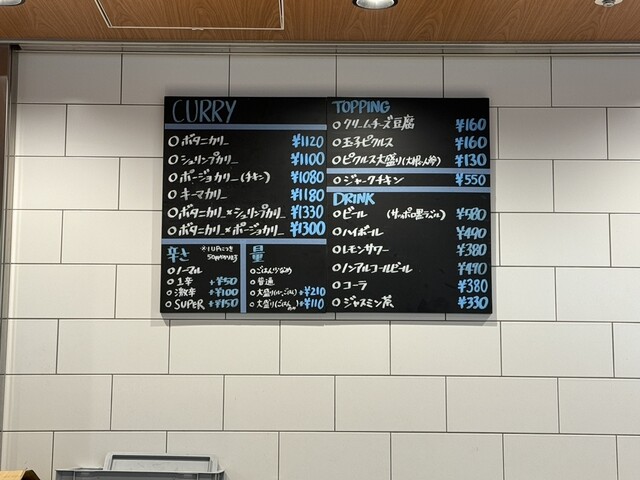 CURRY
ボタニカリー ¥1120
シュリンプカリー ¥1100
ポージョカリー(チキン) ¥1080
キーマカリー ¥1180
ボタニカリー×シュリンプカリー ¥1330
ボタニカリー×ポージョカリー ¥1300
辛さ
ノーマル
1辛 +¥50
激辛 +¥100
SUPER +¥150
量
ごはん少なめ
普通
大盛り(ルー,ごはん) +¥210
大盛り(ごはん) +¥110
TOPPING
クリームチーズ豆腐 ¥160
玉子ピクルス ¥160
ピクルス大盛り(大根、人参) ¥130
ジャークチキン ¥550
DRINK
ビール (サッポロ黒ラベル) ¥580
ハイボール ¥490
レモンサワー ¥380
ノンアルコールビール ¥490
コーラ ¥380
ジャスミン茶 ¥330